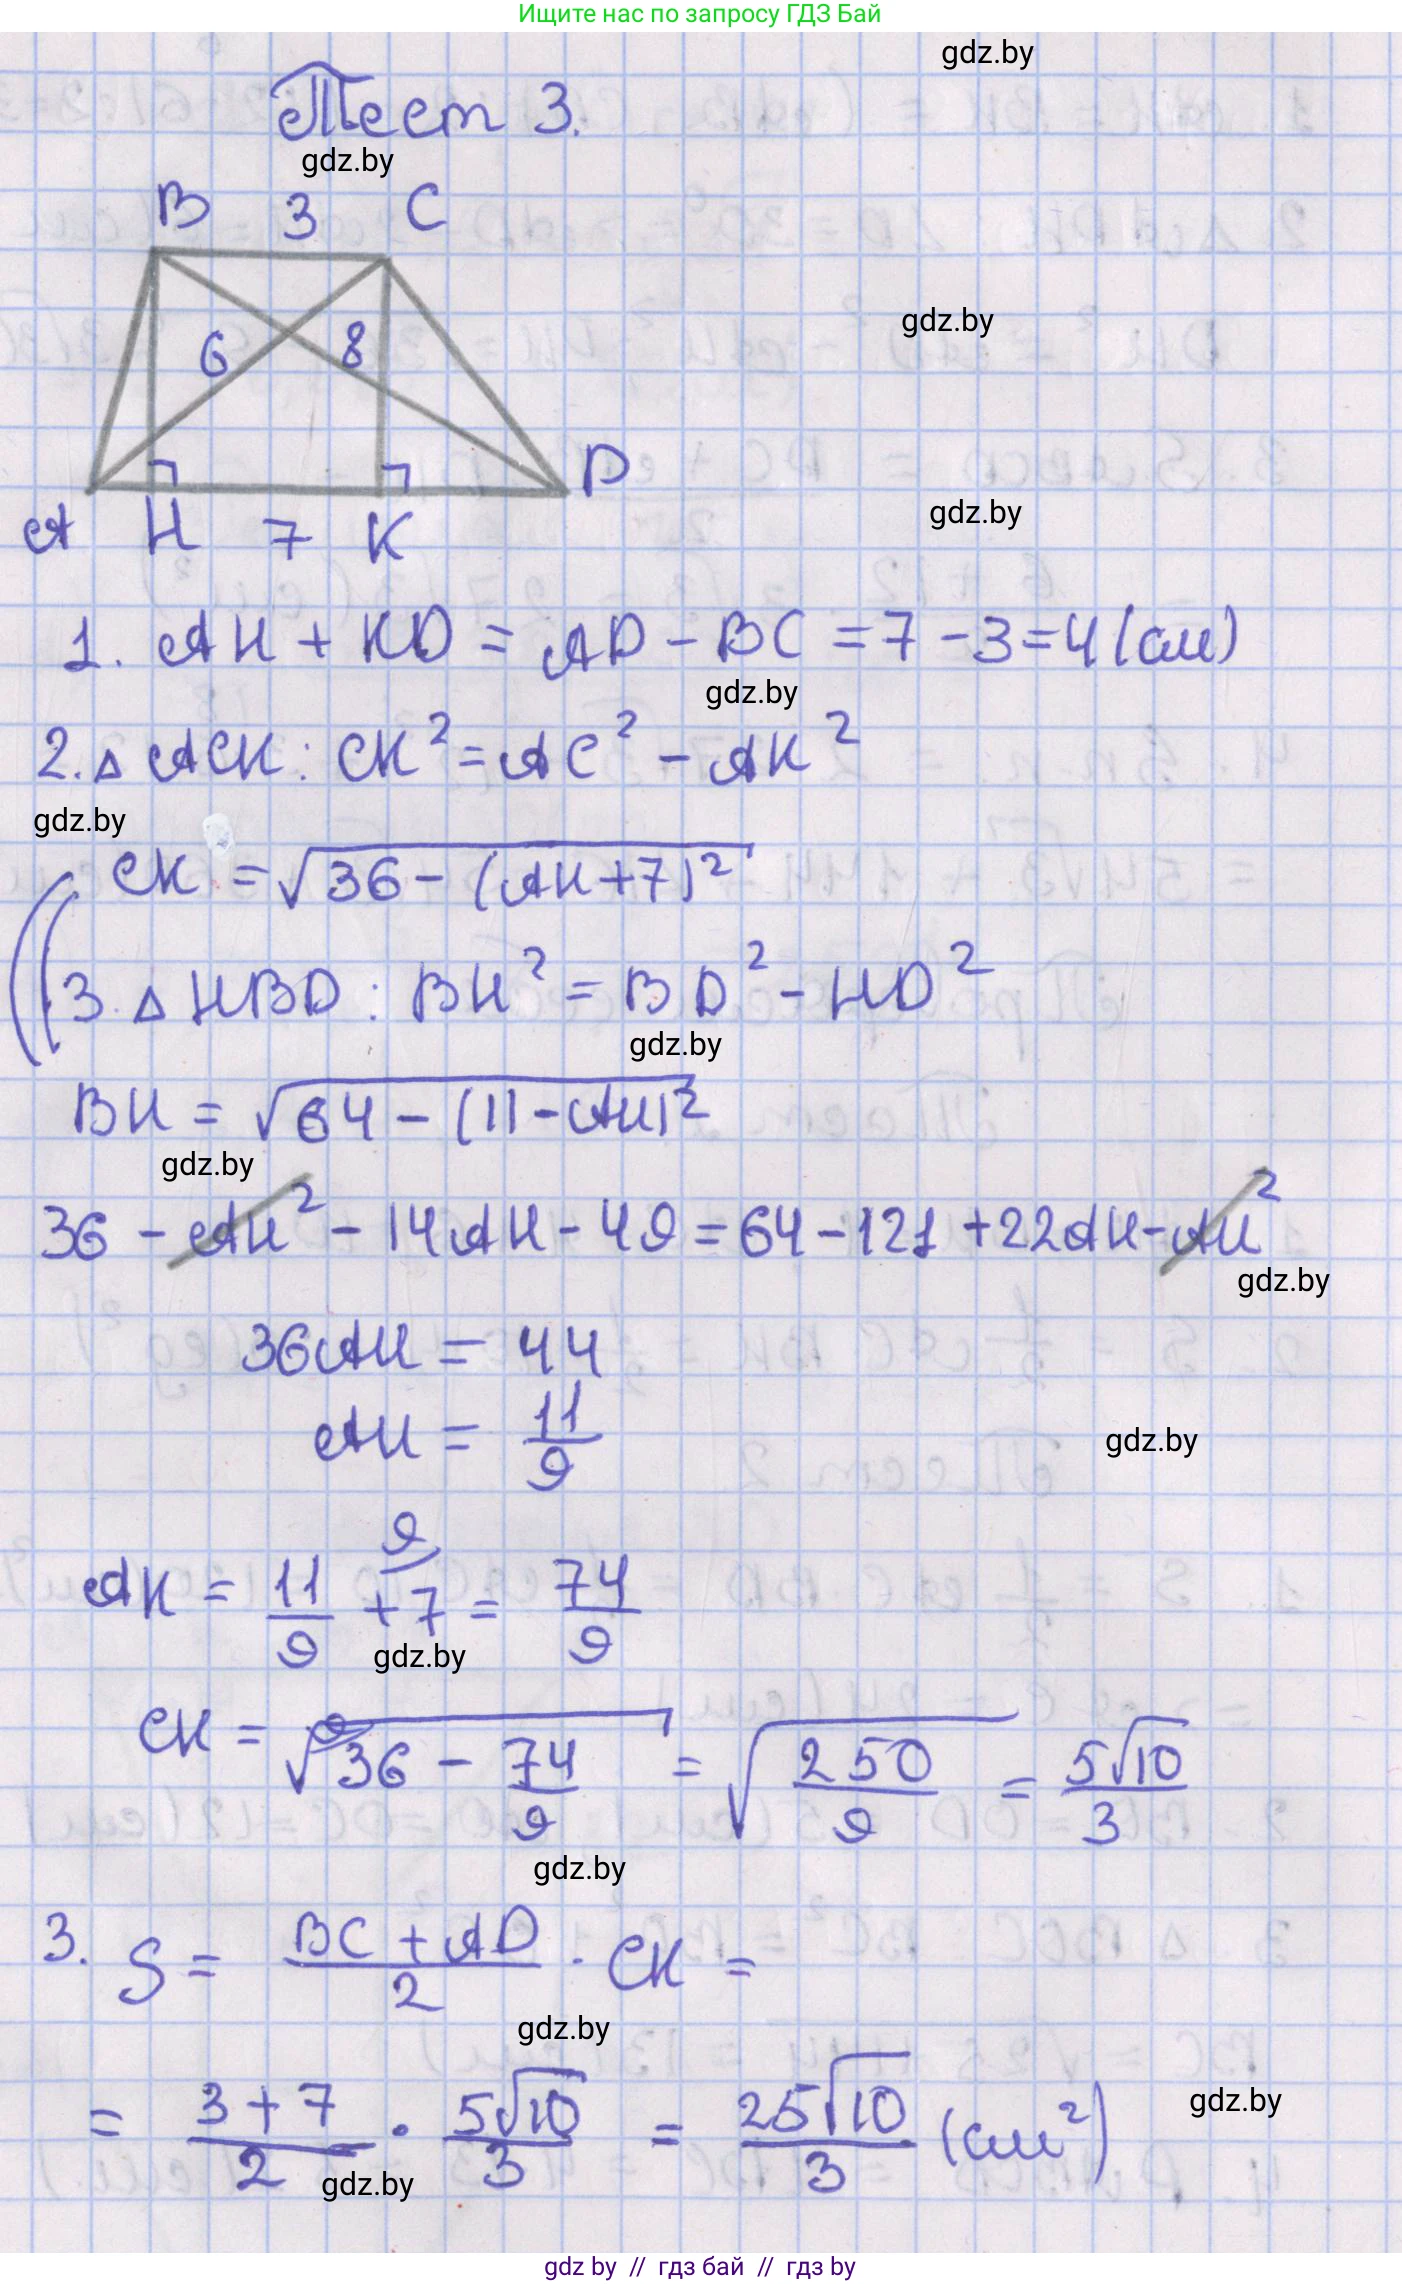 Ищите нас по запросу ГДЗ Бай
gdz.by
Тест 3.
gdz.by
B 3 C
gdz.by
6 8
D
gdz.by
A H 7 K
1. AH + KD = AD - BC = 7 - 3 = 4 (см)
gdz.by
2. △ ACK : CK² = AC² - AK²
gdz.by
CK = √36 - (AH+7)²
3. △ HBD : BH² = BD² - HD²
gdz.by
BH = √64 - (11-AH)²
gdz.by
36 - AH² - 14AH - 49 = 64 - 121 + 22AH - AH²
gdz.by
36AH = 44
AH = 11/9
gdz.by
AK = 11/9 + 7 9 = 74/9
gdz.by
CK = √36 9 - 74/9 = √250/9 = 5√10/3
gdz.by
3. S = BC + AD/2 · CK =
gdz.by
= 3+7/2 · 5√10/3 = 25√10/3 (см²)
gdz.by
gdz.by
gdz by // гдз бай // гдз by